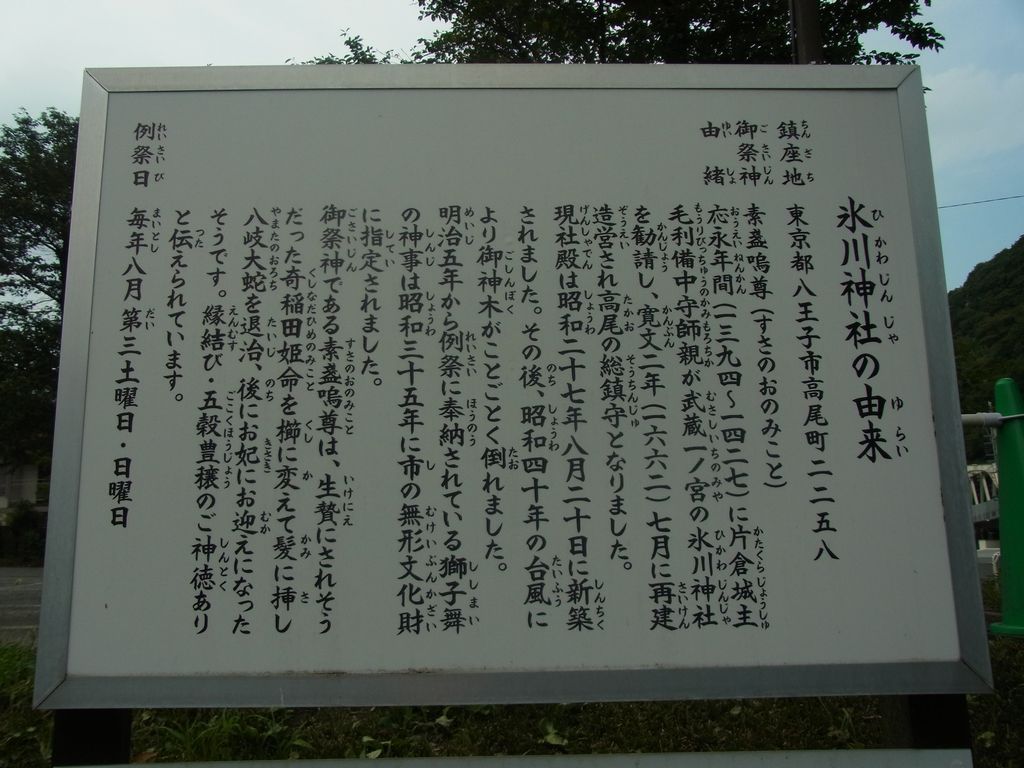 氷川神社の由来
鎮座地 東京都八王子市高尾町二二五八
御祭神 素盞嗚尊(すさのおのみこと)
由緒 応永年間(一三九四～一四二七)に片倉城主
毛利備中守師親が武蔵一ノ宮の氷川神社
を勧請し、寛文二年(一六六二)七月に再建
造営され高尾の総鎮守となりました。
現社殿は昭和二十七年八月二十日に新築
されました。その後、昭和四十年の台風に
より御神木がことごとく倒れました。
明治五年から例祭に奉納されている獅子舞
の神事は昭和三十五年に市の無形文化財
に指定されました。
御祭神である素盞嗚尊は、生贄にされそう
だった奇稲田姫命を櫛に変えて髪に挿し
八岐大蛇を退治、後にお妃にお迎えになった
そうです。縁結び・五穀豊穣のご神徳あり
と伝えられています。
例祭日 毎年八月第三土曜日・日曜日